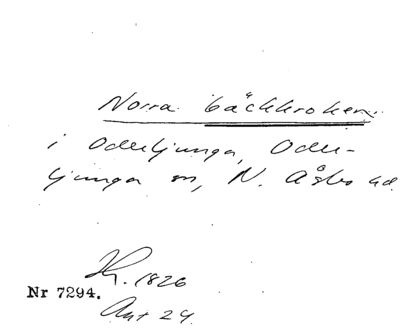 Norra bäckkroken
i Oderljunga, Oder-
ljunga sn, N. Åsbo hd.
Kt. 1826
Nr 7294.
Akt 24